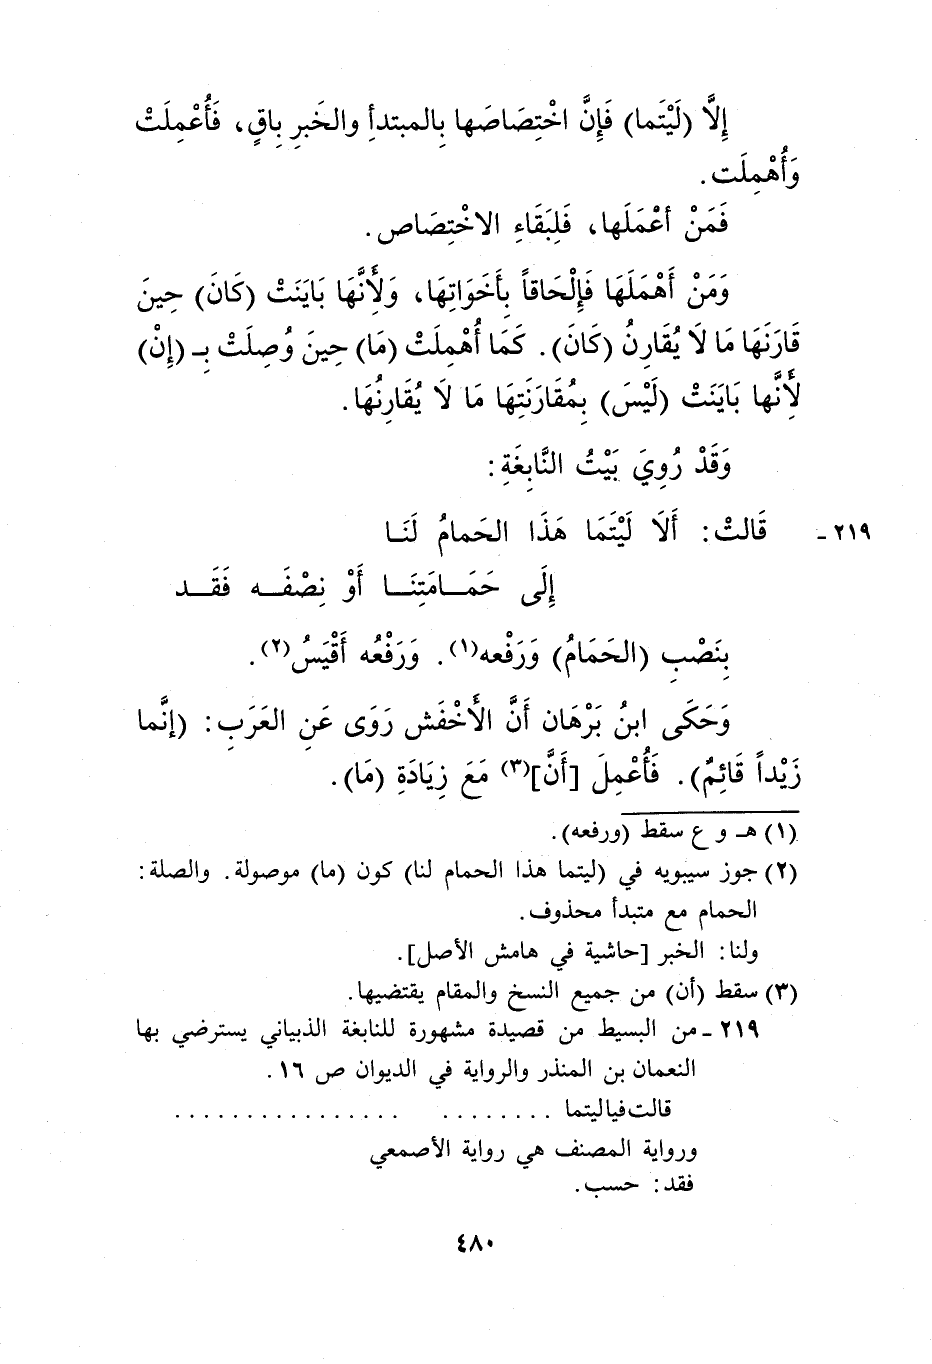 إِلَّا (لَيْتَما) فَإِنَّ اخْتِصَاصَها بِالمبتدأِ والخَبرِ باقٍ، فَأُعْمِلَتْ
وَأُهْمِلَت.
فَمَنْ أعْمَلَها، فَلِبَقَاءِ الاخْتِصَاص.
وَمَنْ أَهْمَلَهَا فَإِلْحَاقاً بِأَخَوَاتِهَا، وَلأَنَّهَا بَايَنَتْ (كَانَ) حِينَ
قَارَنَهَا مَا لَا يُقَارِنُ (كَانَ). كَمَا أُهْمِلَتْ (مَا) حِينَ وُصِلَتْ بِـ (إِنْ)
لأَنَّها بَايَنَتْ (لَيْسَ) بِمُقَارَنَتِهَا مَا لَا يُقَارِنُهَا.
وَقَدْ رُوِيَ بَيْتُ النَّابِغَةِ:
٢١٩ ـ قَالتْ: أَلَا لَيْتَمَا هَذَا الحَمامُ لَنَا
إِلَى حَمَامَتِنَا أَوْ نِصْفَه فَقَد
بِنَصْبِ (الحَمَامُ) وَرَفْعه(١). وَرَفْعُه أَقْيَسُ(٢).
وَحَكَى ابنُ بَرْهَان أَنَّ الأَخْفَش رَوَى عَنِ العَرَبِ: (إنَّما
زَيْداً قَائِمٌ). فَأُعْمِلَ [أَنَّ](٣) مَعَ زِيَادَةِ (مَا).
(١) هـ و ع سقط (ورفعه).
(٢) جوز سيبويه في (ليتما هذا الحمام لنا) كون (ما) موصولة. والصلة:
الحمام مع متبدأ محذوف.
ولنا: الخبر [حاشية في هامش الأصل].
(٣) سقط (أن) من جميع النسخ والمقام يقتضيها.
٢١٩ ـ من البسيط من قصيدة مشهورة للنابغة الذبياني يسترضي بها
النعمان بن المنذر والرواية في الديوان ص ١٦.
قالت فيا ليتما . . . . . . . . . . . . . . . . . . . . . . . .
ورواية المصنف هي رواية الأصمعي
فقد: حسب.
٤٨٠